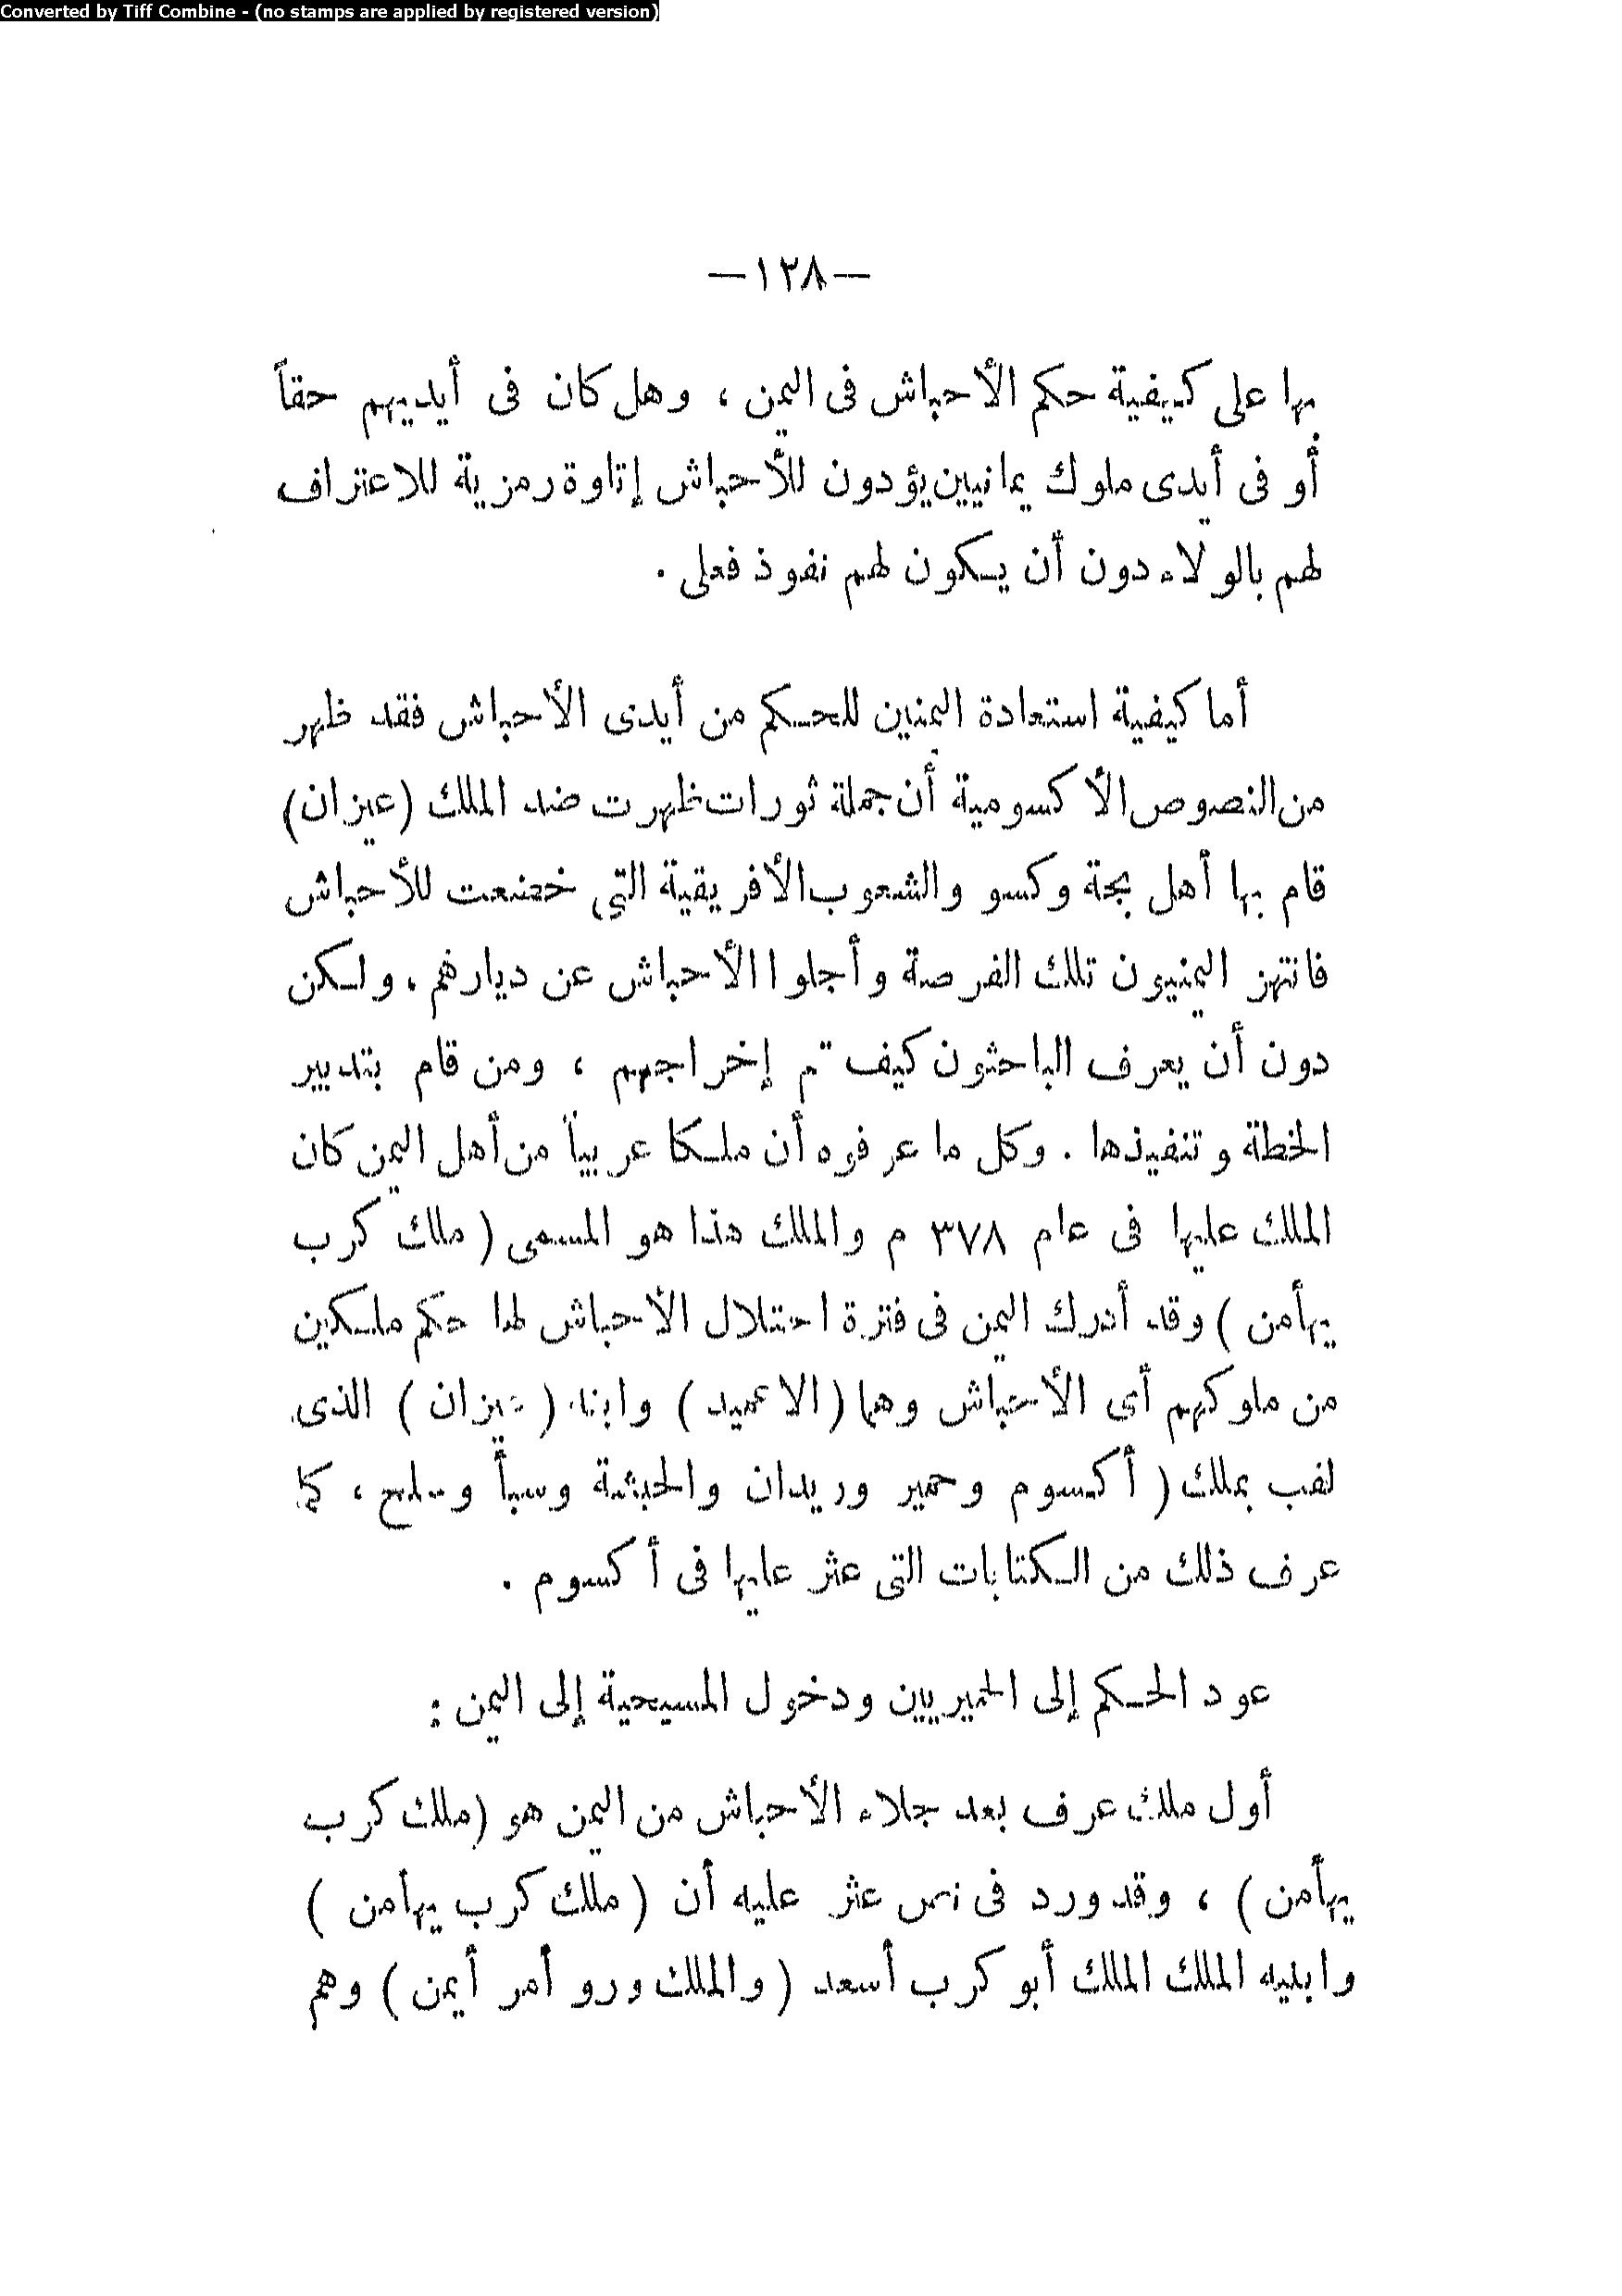 Converted by Tiff Combine - (no stamps are applied by registered version)
—١٢٨—
بها على كيفية حكم الأحباش فى اليمن ، وهل كان فى أيديهم حقاً
أو فى أيدى ملوك يمانيين يؤدون للأحباش إتاوة رمزية للاعتراف
لهم بالولاء دون أن يكون لهم نفوذ فعلى .
أما كيفية استعادة اليمنين للحكم من أيدى الأحباش فقد ظهر
من النصوص الأكسومية أن جملة ثورات ظهرت ضد الملك (عيزان)
قام بها أهل بجة وكسو والشعوب الأفريقية التى خضعت للأحباش
فانتهز اليمنيون تلك الفرصة وأجلوا الأحباش عن ديارهم ، ولكن
دون أن يعرف الباحثون كيف تم إخراجهم ، ومن قام بتدبير
الخطة وتنفيذها . وكل ما عرفوه أن ملكا عربياً من أهل اليمن كان
الملك عليها فى عام ٣٧٨ م والملك هذا هو المسمى ( ملك كرب
يهأمن ) وقد أدرك اليمن فى فترة احتلال الأحباش لها حكم ملكين
من ملوكهم أى الأحباش وهما ( الاعميد ) وابنه ( عيزان ) الذى
لقب بملك ( أكسوم وحمير وريدان والحبشة وسبأ وسلح ، كما
عرف ذلك من الكتابات التى عثر عليها فى أكسوم .
عود الحكم إلى الحميريين ودخول المسيحية إلى اليمن :
أول ملك عرف بعد جلاء الأحباش من اليمن هو (ملك كرب
يهأمن ) ، وقد ورد فى نص عثر عليه أن ( ملك كرب يهأمن )
وابنيه الملك الملك أبو كرب أسعد ( والملك ورو أمر أيمن ) وهم